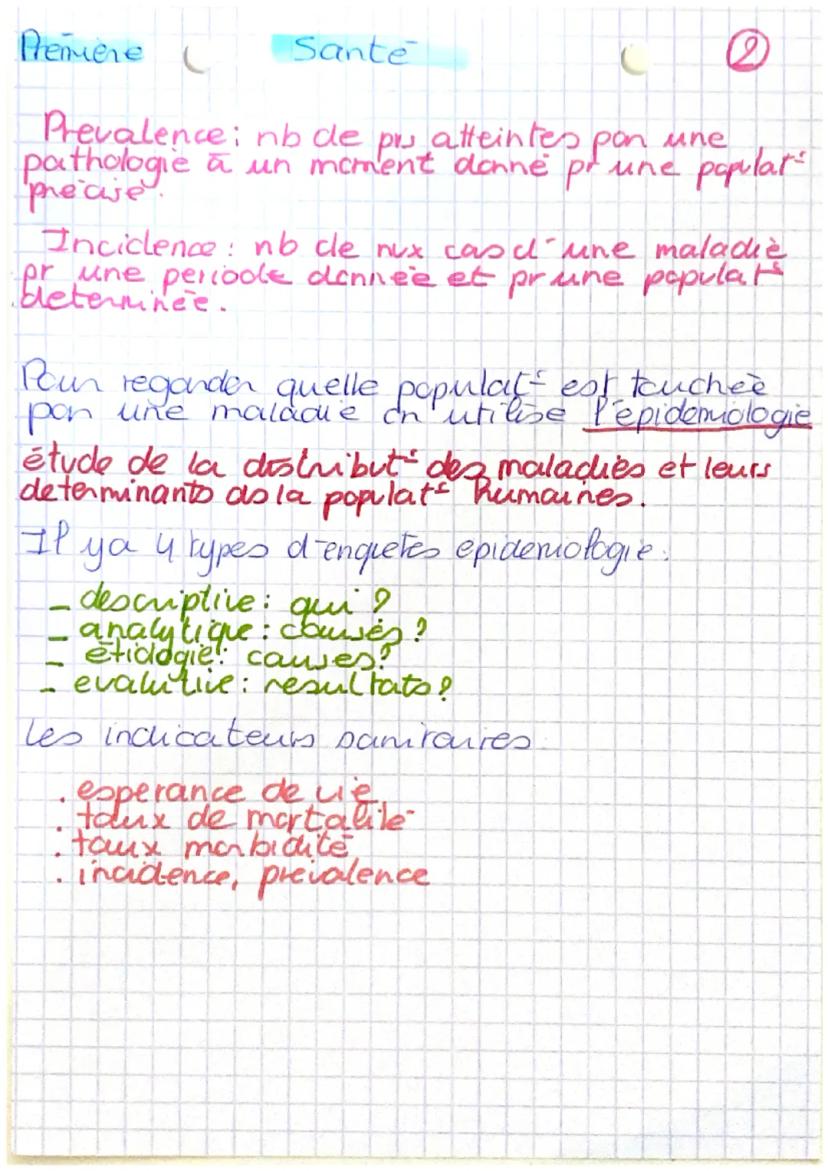 Première Santé 2
Prévalence : nb de prs atteintes par une
pathologie à un moment donné pr une populat°
précise.
Incidence : nb de nvx cas d'une maladie
pr une période donnée et pr une populat°
determinée.
Pour regarder quelle populat° est touchée
par une maladie on utilise l'épidemiologie
étude de la distribut° des maladies et leurs
determinants ds la populat° humaines.
Il y a 4 types d'enquêtes epidemiologie.
- descriptive : qui ?
- analytique : causes ?
- étiologie : causes ?
- evalutive : resultats ?
Les indicateurs sanitaires
. esperance de vie
. taux de mortalité
. taux morbidité
. incidence, prevalence